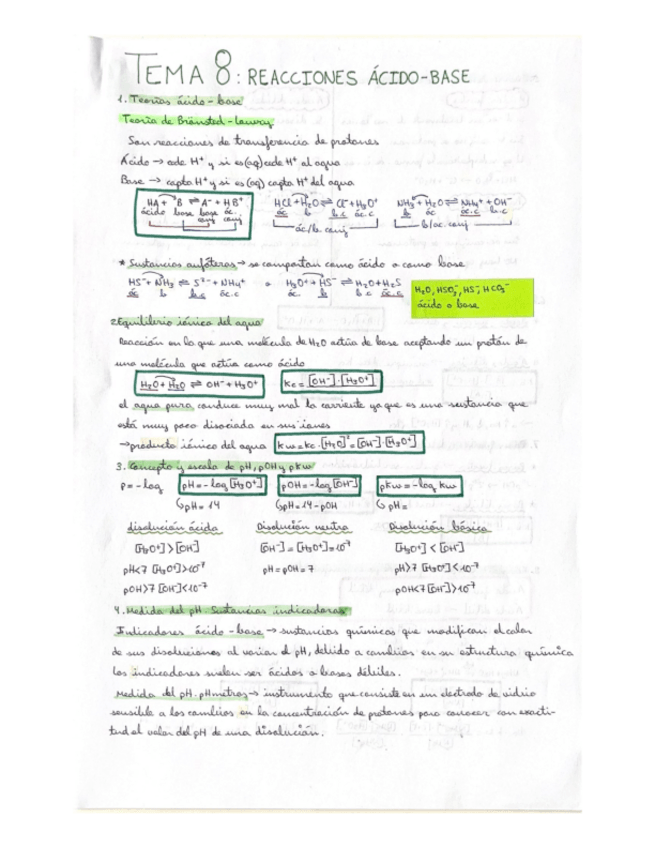 TEMA 8: REACCIONES ÁCIDO-BASE
1. Teorías ácido-base
Teoría de Brönsted-Lowry
Son reacciones de transferencia de protones
Ácido → cede H⁺ y si es (aq) cede H⁺ al agua
Base → capta H⁺ y si es (aq) capta H⁺ del agua
HA + B ⇌ A⁻ + HB⁺ HCl + H₂O ⇌ Cl⁻ + H₃O⁺ NH₃ + H₂O ⇌ NH₄⁺ + OH⁻
ácido base base ác. ác b b.c ác.c b ác ác.c b.c
conj conj
ác/b. conj b/ác. conj
* Sustancias anfóteras → se comportan como ácido o como base
HS⁻ + NH₃ ⇌ S²⁻ + NH₄⁺ o H₃O⁺ + HS⁻ ⇌ H₂O + H₂S
ác b b.c ác.c ác. b b.c ác.c
H₂O, HSO₄⁻, HS⁻, HCO₃⁻
ácido o base
2. Equilibrio iónico del agua
Reacción en la que una molécula de H₂O actúa de base aceptando un protón de
una molécula que actúa como ácido
H₂O + H₂O ⇌ OH⁻ + H₃O⁺ Kc = [OH⁻]·[H₃O⁺]
el agua pura conduce muy mal la corriente ya que es una sustancia que
está muy poco disociada en sus iones
→ producto iónico del agua Kw = Kc·[H₂O]² = [OH⁻]·[H₃O⁺]
3. Concepto y escala de pH, pOH y pKw
p = -log pH = -log [H₃O⁺] pOH = -log [OH⁻] pKw = -log Kw
↳ pH = 14 ↳ pH = 14 - pOH ↳ pH =
disolución ácida Disolución neutra Disolución básica
[H₃O⁺] > [OH⁻] [OH⁻] = [H₃O⁺] = 10⁻⁷ [H₃O⁺] < [OH⁻]
pH < 7 [H₃O⁺] > 10⁻⁷ pH = pOH = 7 pH > 7 [H₃O⁺] < 10⁻⁷
pOH > 7 [OH⁻] < 10⁻⁷ pOH < 7 [OH⁻] > 10⁻⁷
4. Medida del pH. Sustancias indicadoras
Indicadores ácido-base → sustancias químicas que modifican el color
de sus disoluciones al variar el pH, debido a cambios en su estructura química
los indicadores suelen ser ácidos o bases débiles.
Medida del pH. pHmetros → instrumento que consiste en un electrodo de vidrio
sensible a los cambios en la concentración de protones para conocer con exacti-
tud el valor del pH de una disolución.